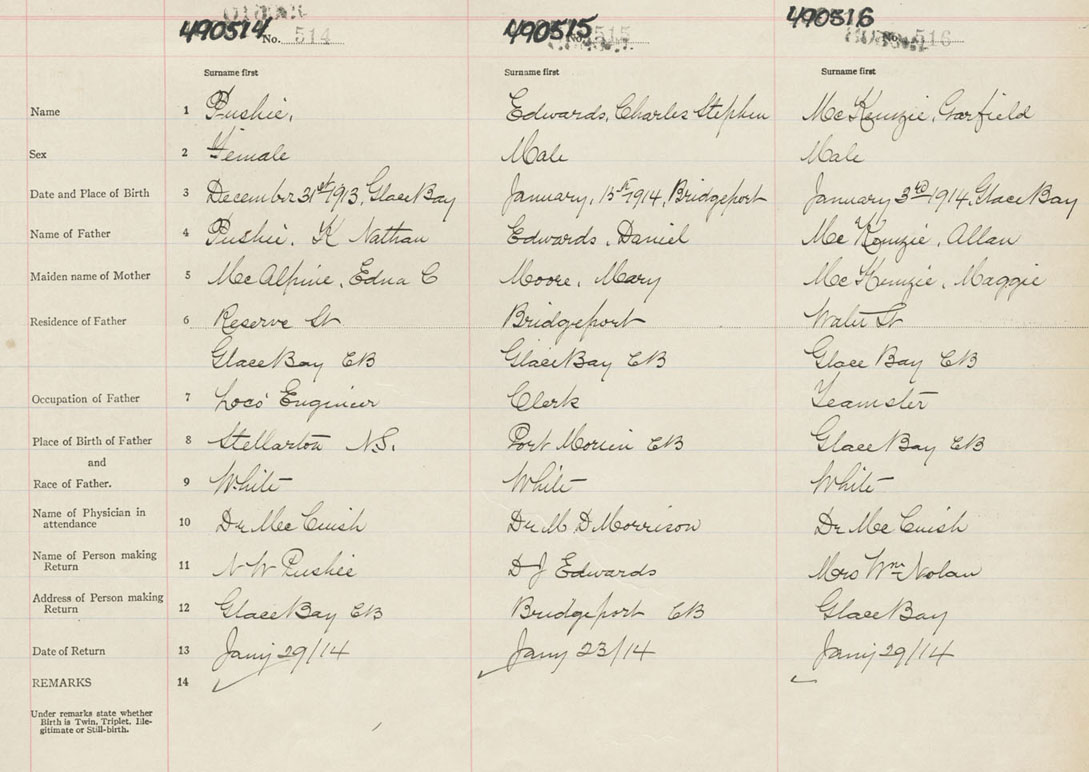 490514 No. 514 490515 No. 515 490516 No. 516
Surname first Surname first Surname first
Name 1 Pushie, Edwards, Charles Stephen McKenzie, Garfield
Sex 2 Female Male Male
Date and Place of Birth 3 December 31st 1913, Glace Bay January, 15th 1914, Bridgeport January 3rd 1914, Glace Bay
Name of Father 4 Pushie, K Nathan Edwards, Daniel McKenzie, Allan
Maiden name of Mother 5 McAlpine, Edna C Moore, Mary McKenzie, Maggie
Residence of Father 6 Reserve St Bridgeport Water St
Glace Bay CB Glace Bay CB Glace Bay CB
Occupation of Father 7 Loco' Engineer Clerk Teamster
Place of Birth of Father 8 Stellarton N.S. Port Morien CB Glace Bay CB
and
Race of Father. 9 White White White
Name of Physician in
attendance 10 Dr McCuish Dr M D Morrison Dr McCuish
Name of Person making
Return 11 N W Pushie D J Edwards Mrs Wm Nolan
Address of Person making
Return 12 Glace Bay CB Bridgeport CB Glace Bay
Date of Return 13 Jany 29/14 Jany 23/14 Jany 29/14
REMARKS 14
Under remarks state whether
Birth is Twin, Triplet, Ille-
gitimate or Still-birth.